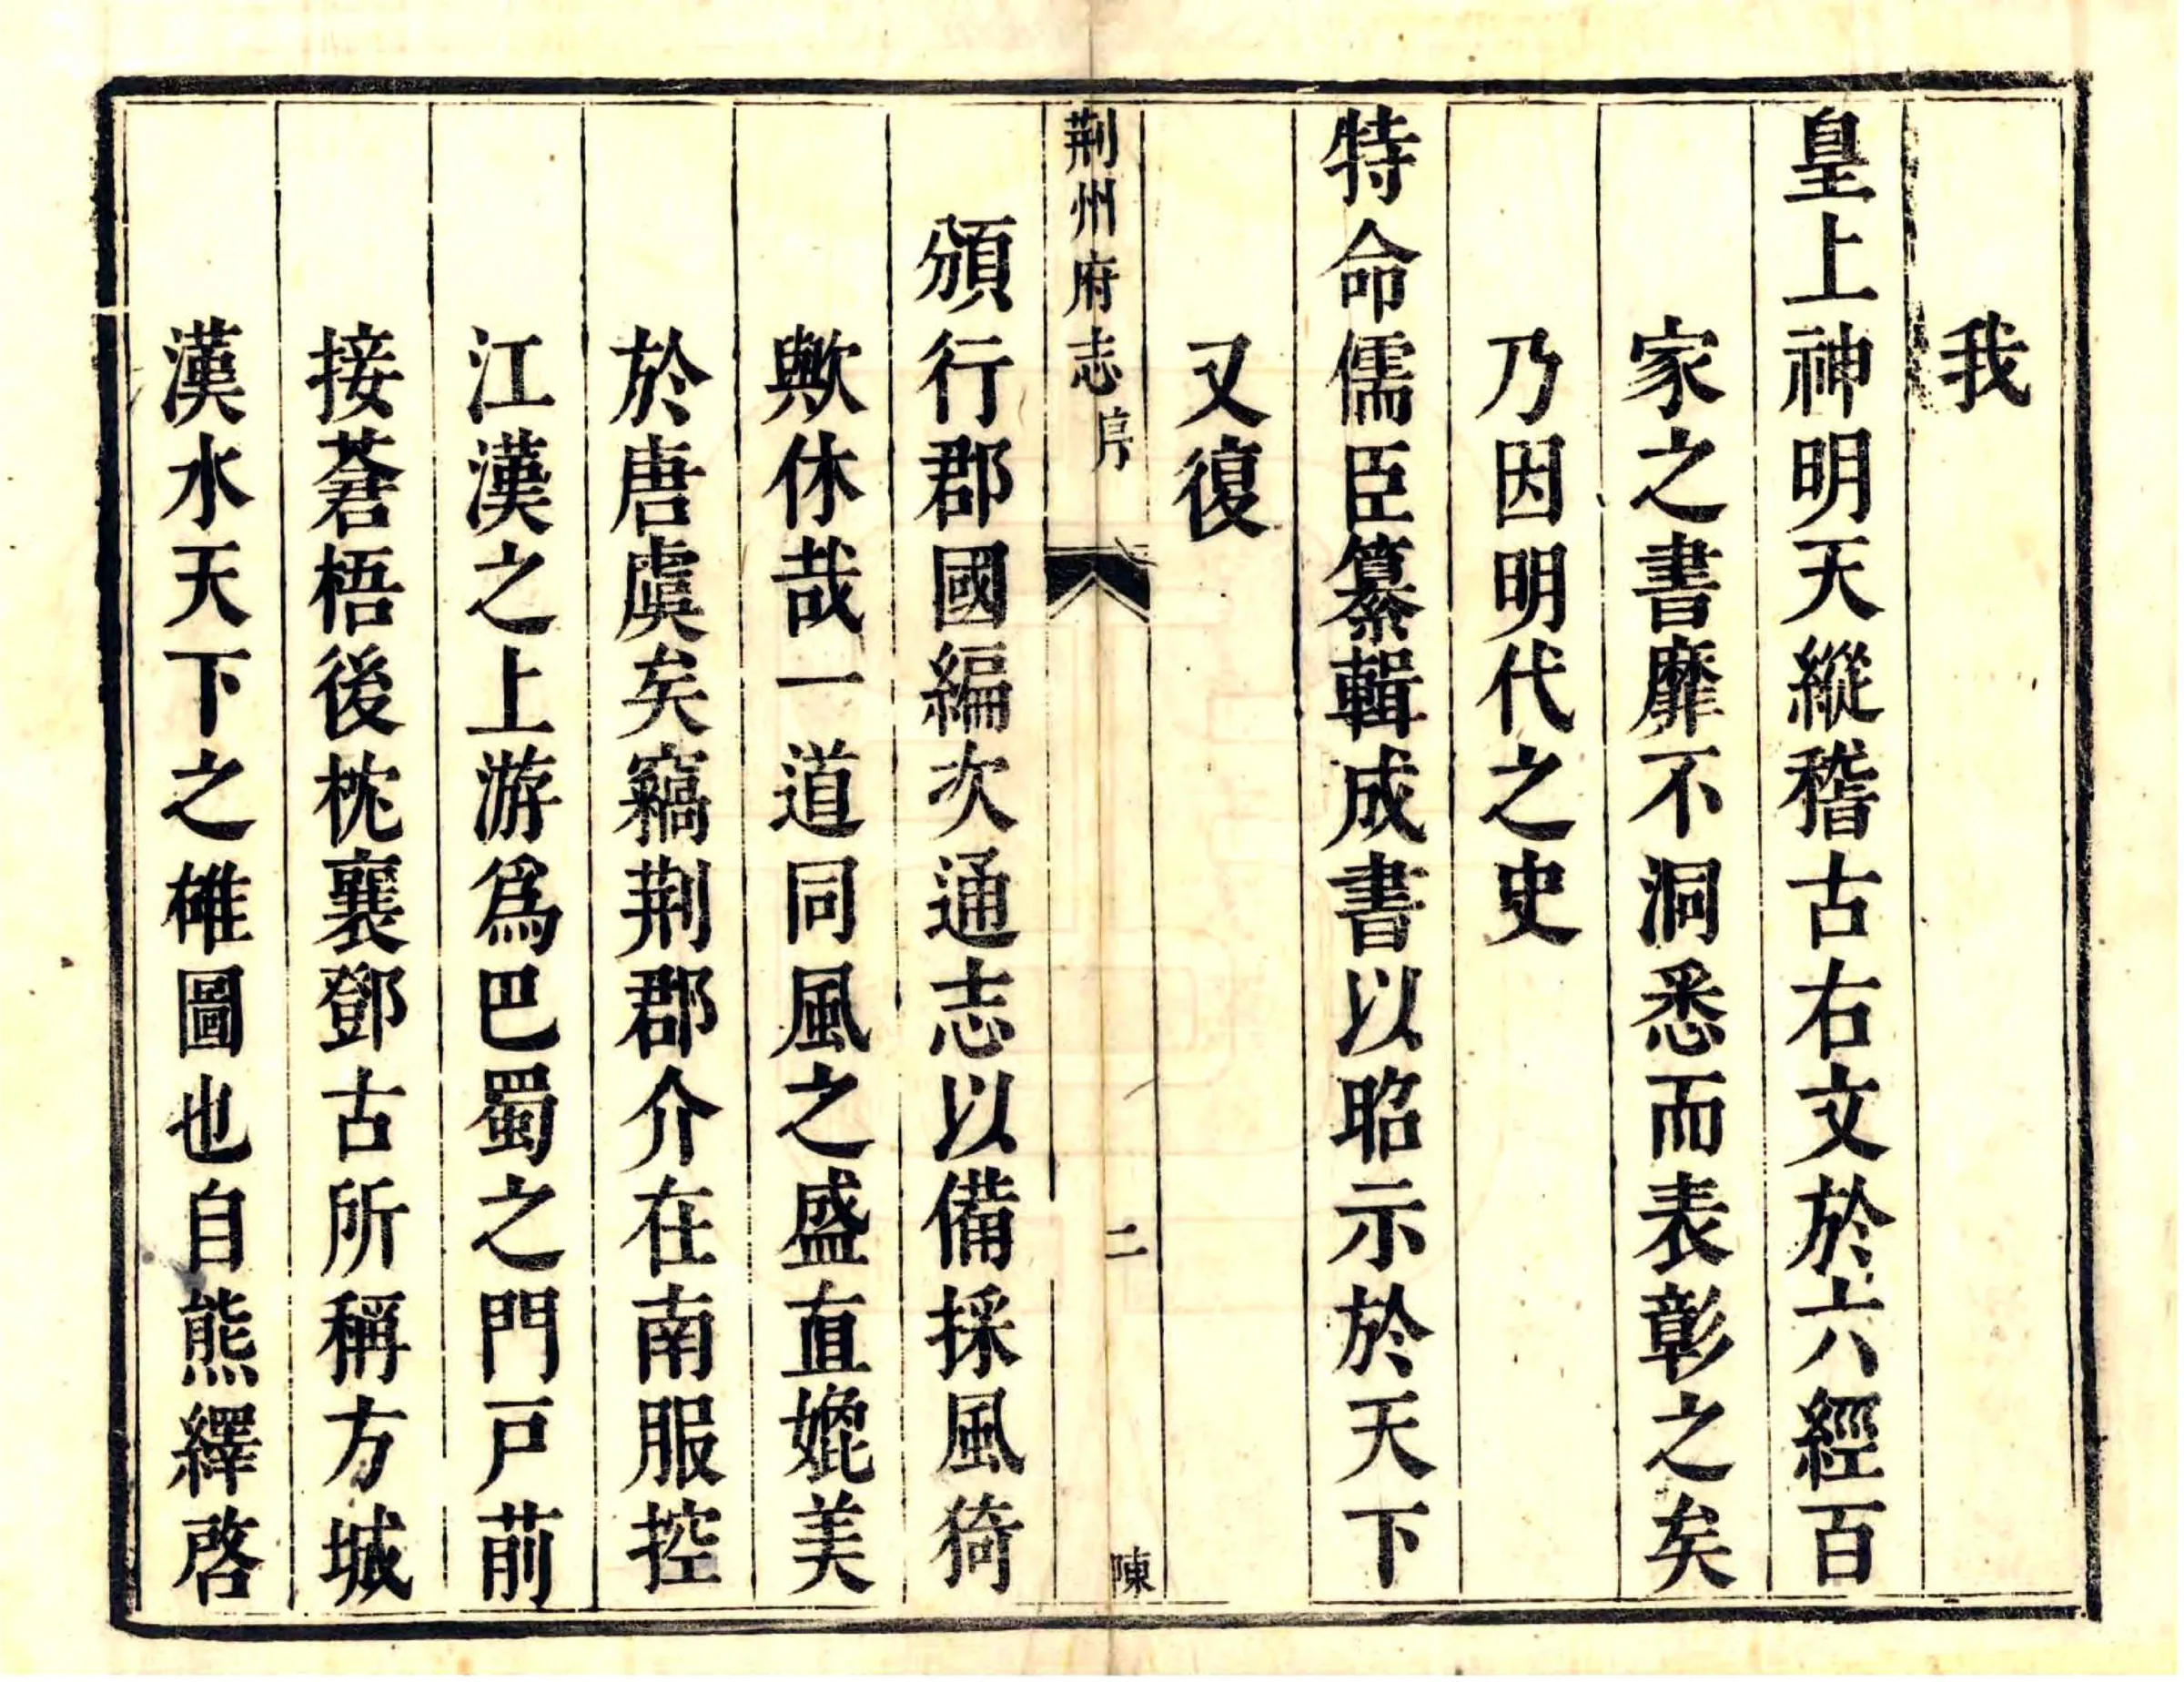 我
皇上神明天縱稽古右文於六經百
家之書靡不洞悉而表彰之矣
乃因明代之史
特命儒臣纂輯成書以昭示於天下
又復
荆州府志 序 二 陳
頒行郡國編次通志以備採風猗
歟休哉一道同風之盛直媲美
於唐虞矣竊荆郡介在南服控
江漢之上游爲巴蜀之門戸前
接蒼梧後枕襄鄧古所稱方城
漢水天下之雄圖也自熊繹啓